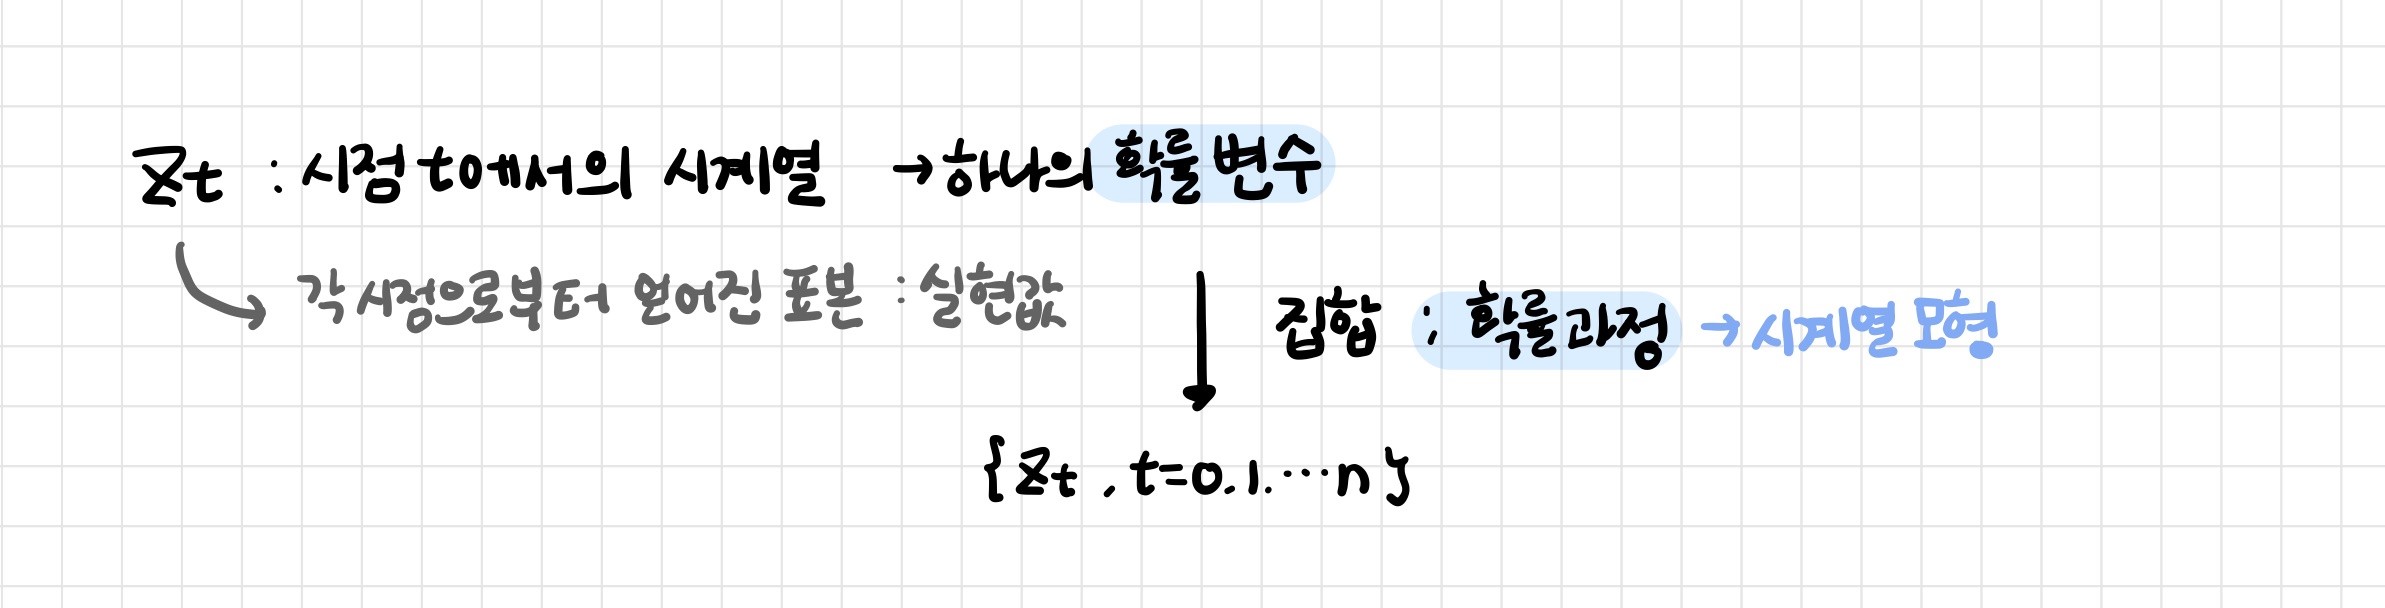 Zt : 시점 t에서의 시계열 → 하나의 확률변수
각 시점으로부터 얻어진 표본 : 실현값
집합 ; 확률과정 → 시계열 모형
{Zt , t=0.1.…n}